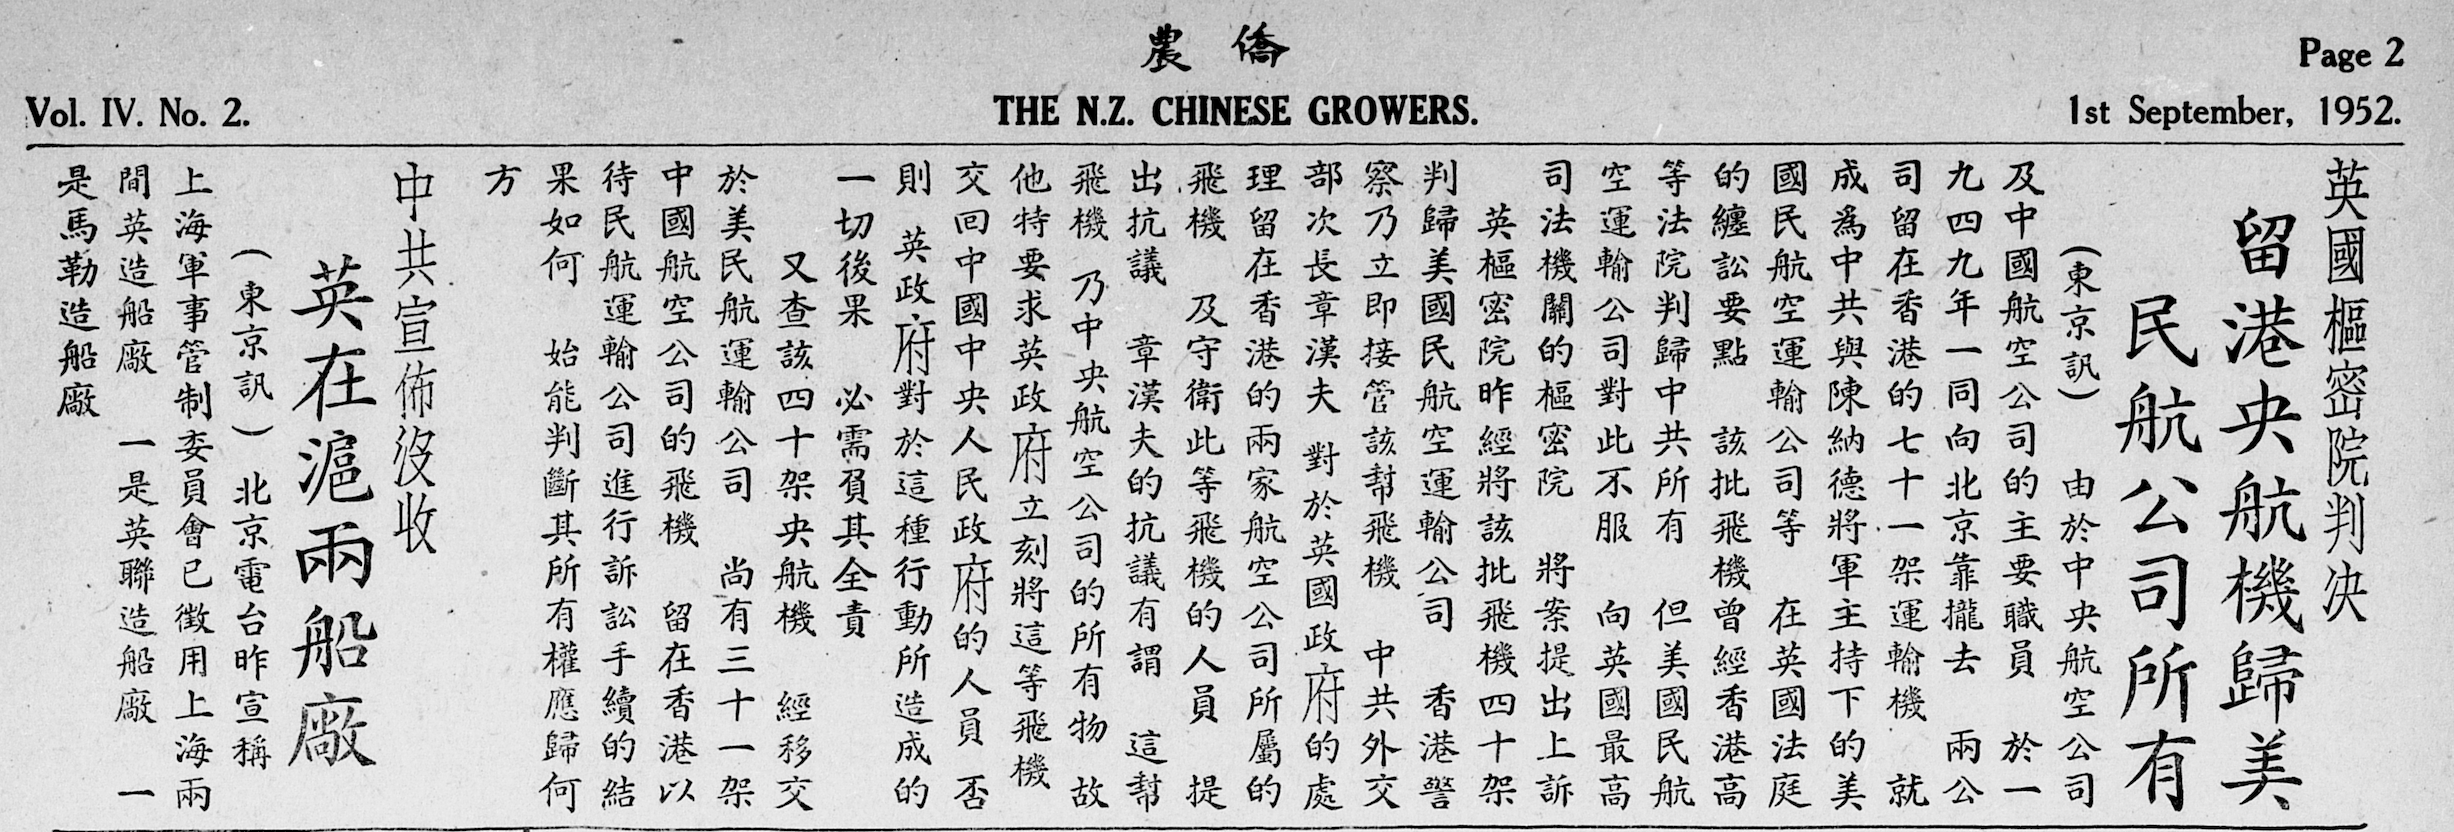 僑農
Page 2
Vol. IV. No. 2.
THE N.Z. CHINESE GROWERS.
1st September, 1952.
英國樞密院判决
留港央航機歸美
民航公司所有
（東京訊） 由於中央航空公司
及中國航空公司的主要職員 於一
九四九年一同向北京靠攏去 兩公
司留在香港的七十一架運輸機 就
成為中共與陳納德將軍主持下的美
國民航空運輸公司等 在英國法庭
的纏訟要點 該批飛機曾經香港高
等法院判歸中共所有 但美國民航
空運輸公司對此不服 向英國最高
司法機關的樞密院 將案提出上訴
英樞密院昨經將該批飛機四十架
判歸美國民航空運輸公司 香港警
察乃立即接管該幫飛機 中共外交
部次長章漢夫 對於英國政府的處
理留在香港的兩家航空公司所屬的
飛機 及守衛此等飛機的人員 提
出抗議 章漢夫的抗議有謂 這幫
飛機 乃中央航空公司的所有物 故
他特要求英政府立刻將這等飛機
交回中國中央人民政府的人員 否
則 英政府對於這種行動所造成的
一切後果 必需負其全責
又查該四十架央航機 經移交
於美民航運輸公司 尚有三十一架
中國航空公司的飛機 留在香港以
待民航運輸公司進行訴訟手續的結
果如何 始能判斷其所有權應歸何
方
中共宣佈沒收
英在滬兩船廠
（東京訊） 北京電台昨宣稱
上海軍事管制委員會已徵用上海兩
間英造船廠 一是英聯造船廠 一
是馬勒造船廠